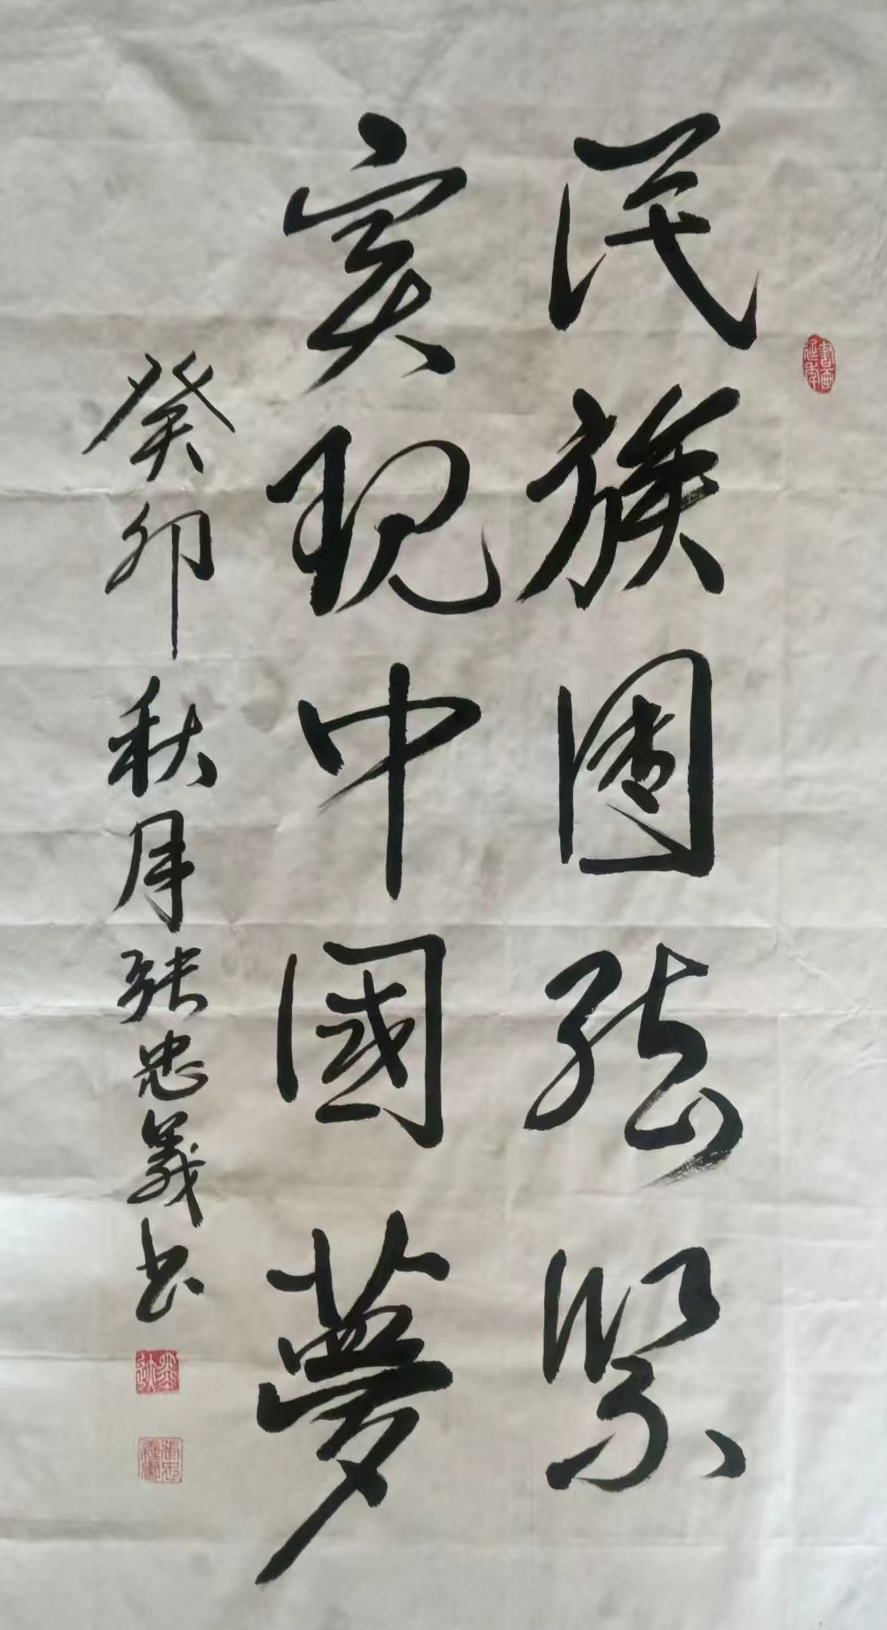 民族團結緊
實現中國夢
癸卯秋月張忠義書
書画延年